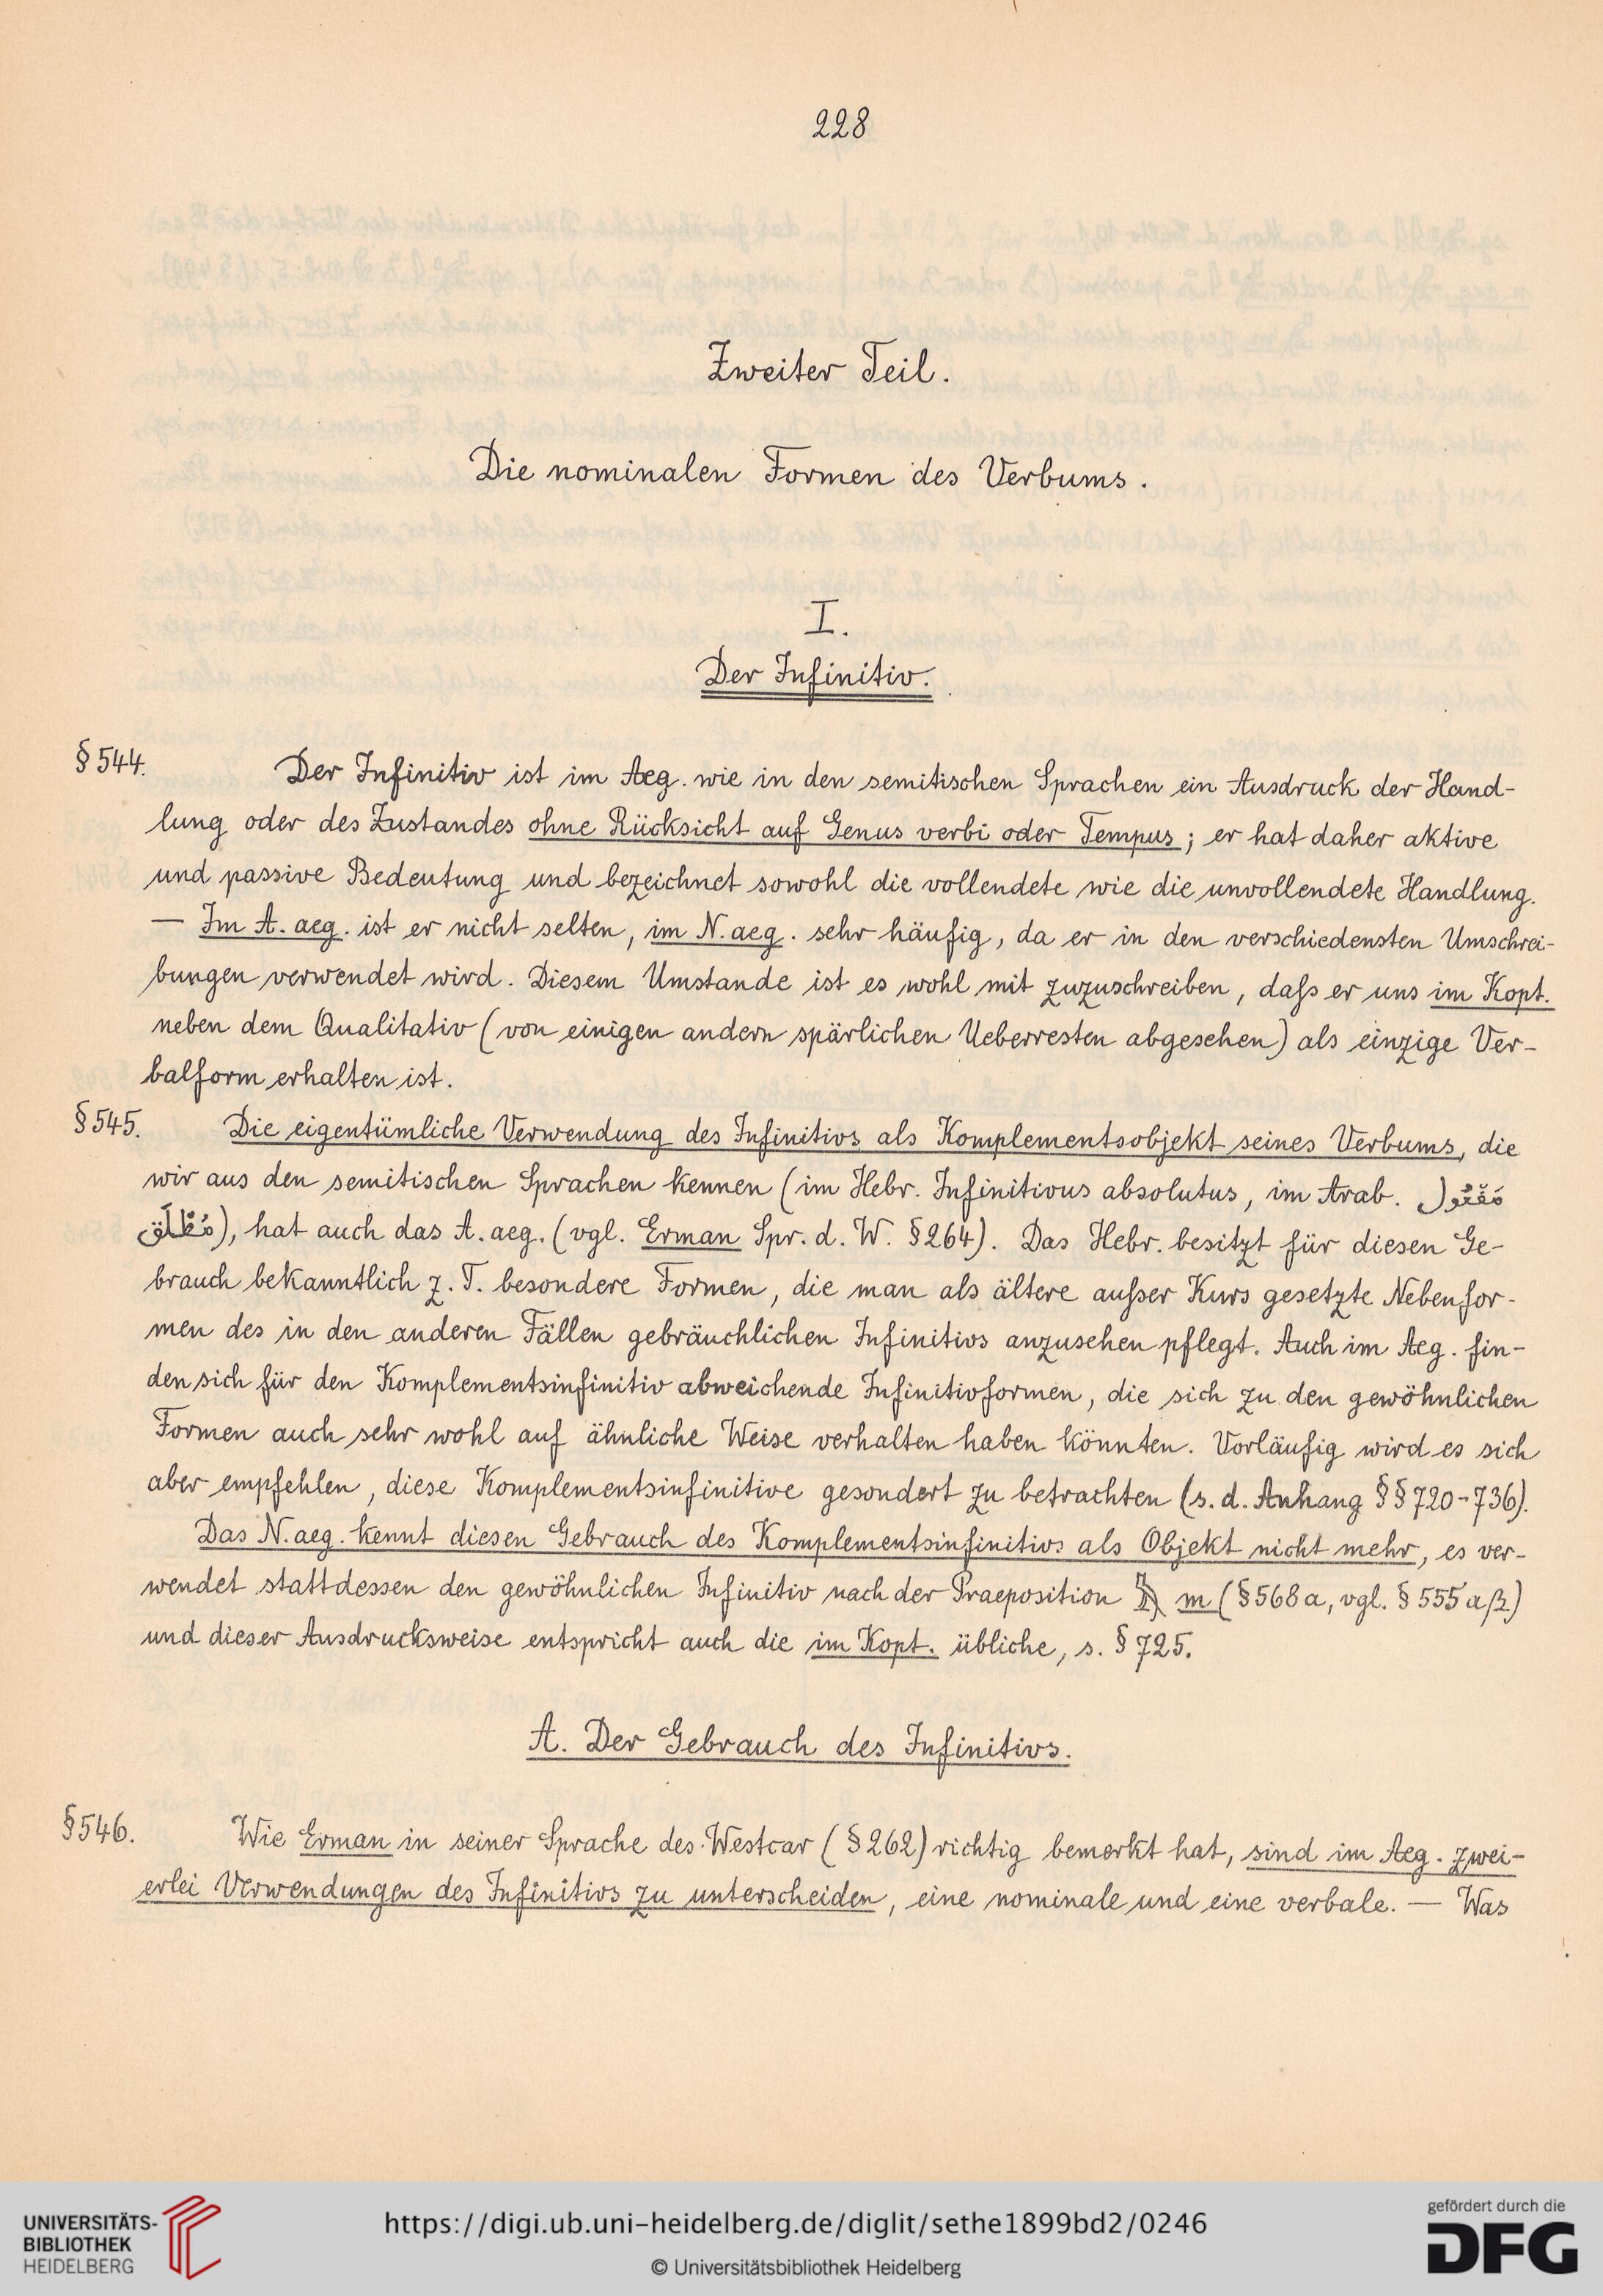 228
Zweiter Teil.
Die nominalen Formen des Verbums.
I.
Der Infinitiv.
§ 544. Der Infinitiv ist im Aeg. wie in den semitischen Sprachen ein Ausdruck der Hand-
lung oder des Zustandes ohne Rücksicht auf Genus verbi oder Tempus; er hat daher aktive
und passive Bedeutung und bezeichnet sowohl die vollendete wie die unvollendete Handlung.
— Im A. aeg. ist er nicht selten, im N. aeg. sehr häufig, da er in den verschiedensten Umschrei-
bungen verwendet wird. Diesem Umstande ist es wohl mit zuzuschreiben, daſs er uns im Kopt.
neben dem Qualitativ (von einigen andern spärlichen Ueberresten abgesehen) als einzige Ver-
balform erhalten ist.
§ 545. Die eigentümliche Verwendung des Infinitivs als Komplementsobjekt seines Verbums, die
wir aus den semitischen Sprachen kennen (im Hebr. Infinitivus absolutus, im Arab. مَفْعُول
مُطْلَق), hat auch das A. aeg. (vgl. Erman Spr. d. W. § 264). Das Hebr. besitzt für diesen Ge-
brauch bekanntlich z. T. besondere Formen, die man als ältere auſser Kurs gesetzte Nebenfor-
men des in den anderen Fällen gebräuchlichen Infinitivs anzusehen pflegt. Auch im Aeg. fin-
den sich für den Komplementsinfinitiv abweichende Infinitivformen, die sich zu den gewöhnlichen
Formen auch sehr wohl auf ähnliche Weise verhalten haben könnten. Vorläufig wird es sich
aber empfehlen, diese Komplementsinfinitive gesondert zu betrachten (s. d. Anhang §§ 720-736).
Das N. aeg. kennt diesen Gebrauch des Komplementsinfinitivs als Objekt nicht mehr, es ver-
wendet stattdessen den gewöhnlichen Infinitiv nach der Praeposition 𓅓 m (§ 568 a, vgl. § 555 aβ)
und dieser Ausdrucksweise entspricht auch die im Kopt. übliche, s. § 725.
A. Der Gebrauch des Infinitivs.
§ 546. Wie Erman in seiner Sprache des Westcar (§ 262) richtig bemerkt hat, sind im Aeg. zwei-
erlei Verwendungen des Infinitivs zu unterscheiden, eine nominale und eine verbale. — Was
UNIVERSITÄTS-
BIBLIOTHEK
HEIDELBERG
https://digi.ub.uni-heidelberg.de/diglit/sethe1899bd2/0246
© Universitätsbibliothek Heidelberg
gefördert durch die
DFG